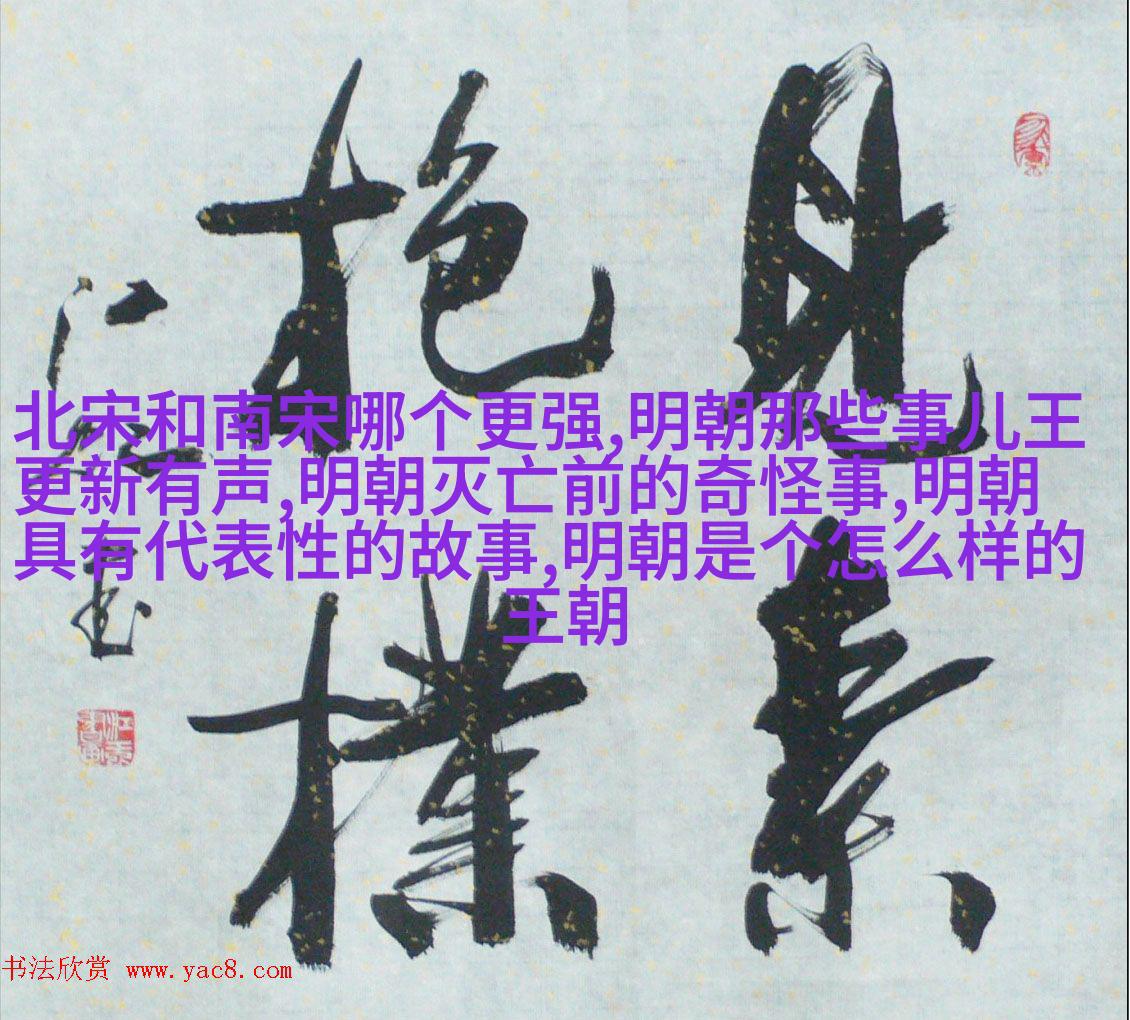 見素
抱樸
江
書
北宋和南宋哪个更强,明朝那些事儿王
更新有声,明朝灭亡前的奇怪事,明朝
具有代表性的故事,明朝是个怎么样的
王朝
书法欣赏 www.yac8.com